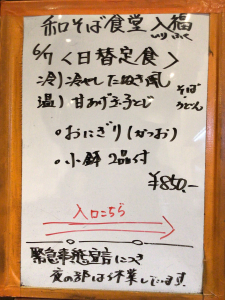 和そば食堂 入福
いり ふく
6/7 〈日替定食〉
冷)冷やし たぬき風
温)甘あげ玉子とじ
そば
うどん
・おにぎり(かつお)
・小鉢 2品付
¥850.-
入口こちら
緊急事態宣言につき
夜の部は休業しています!